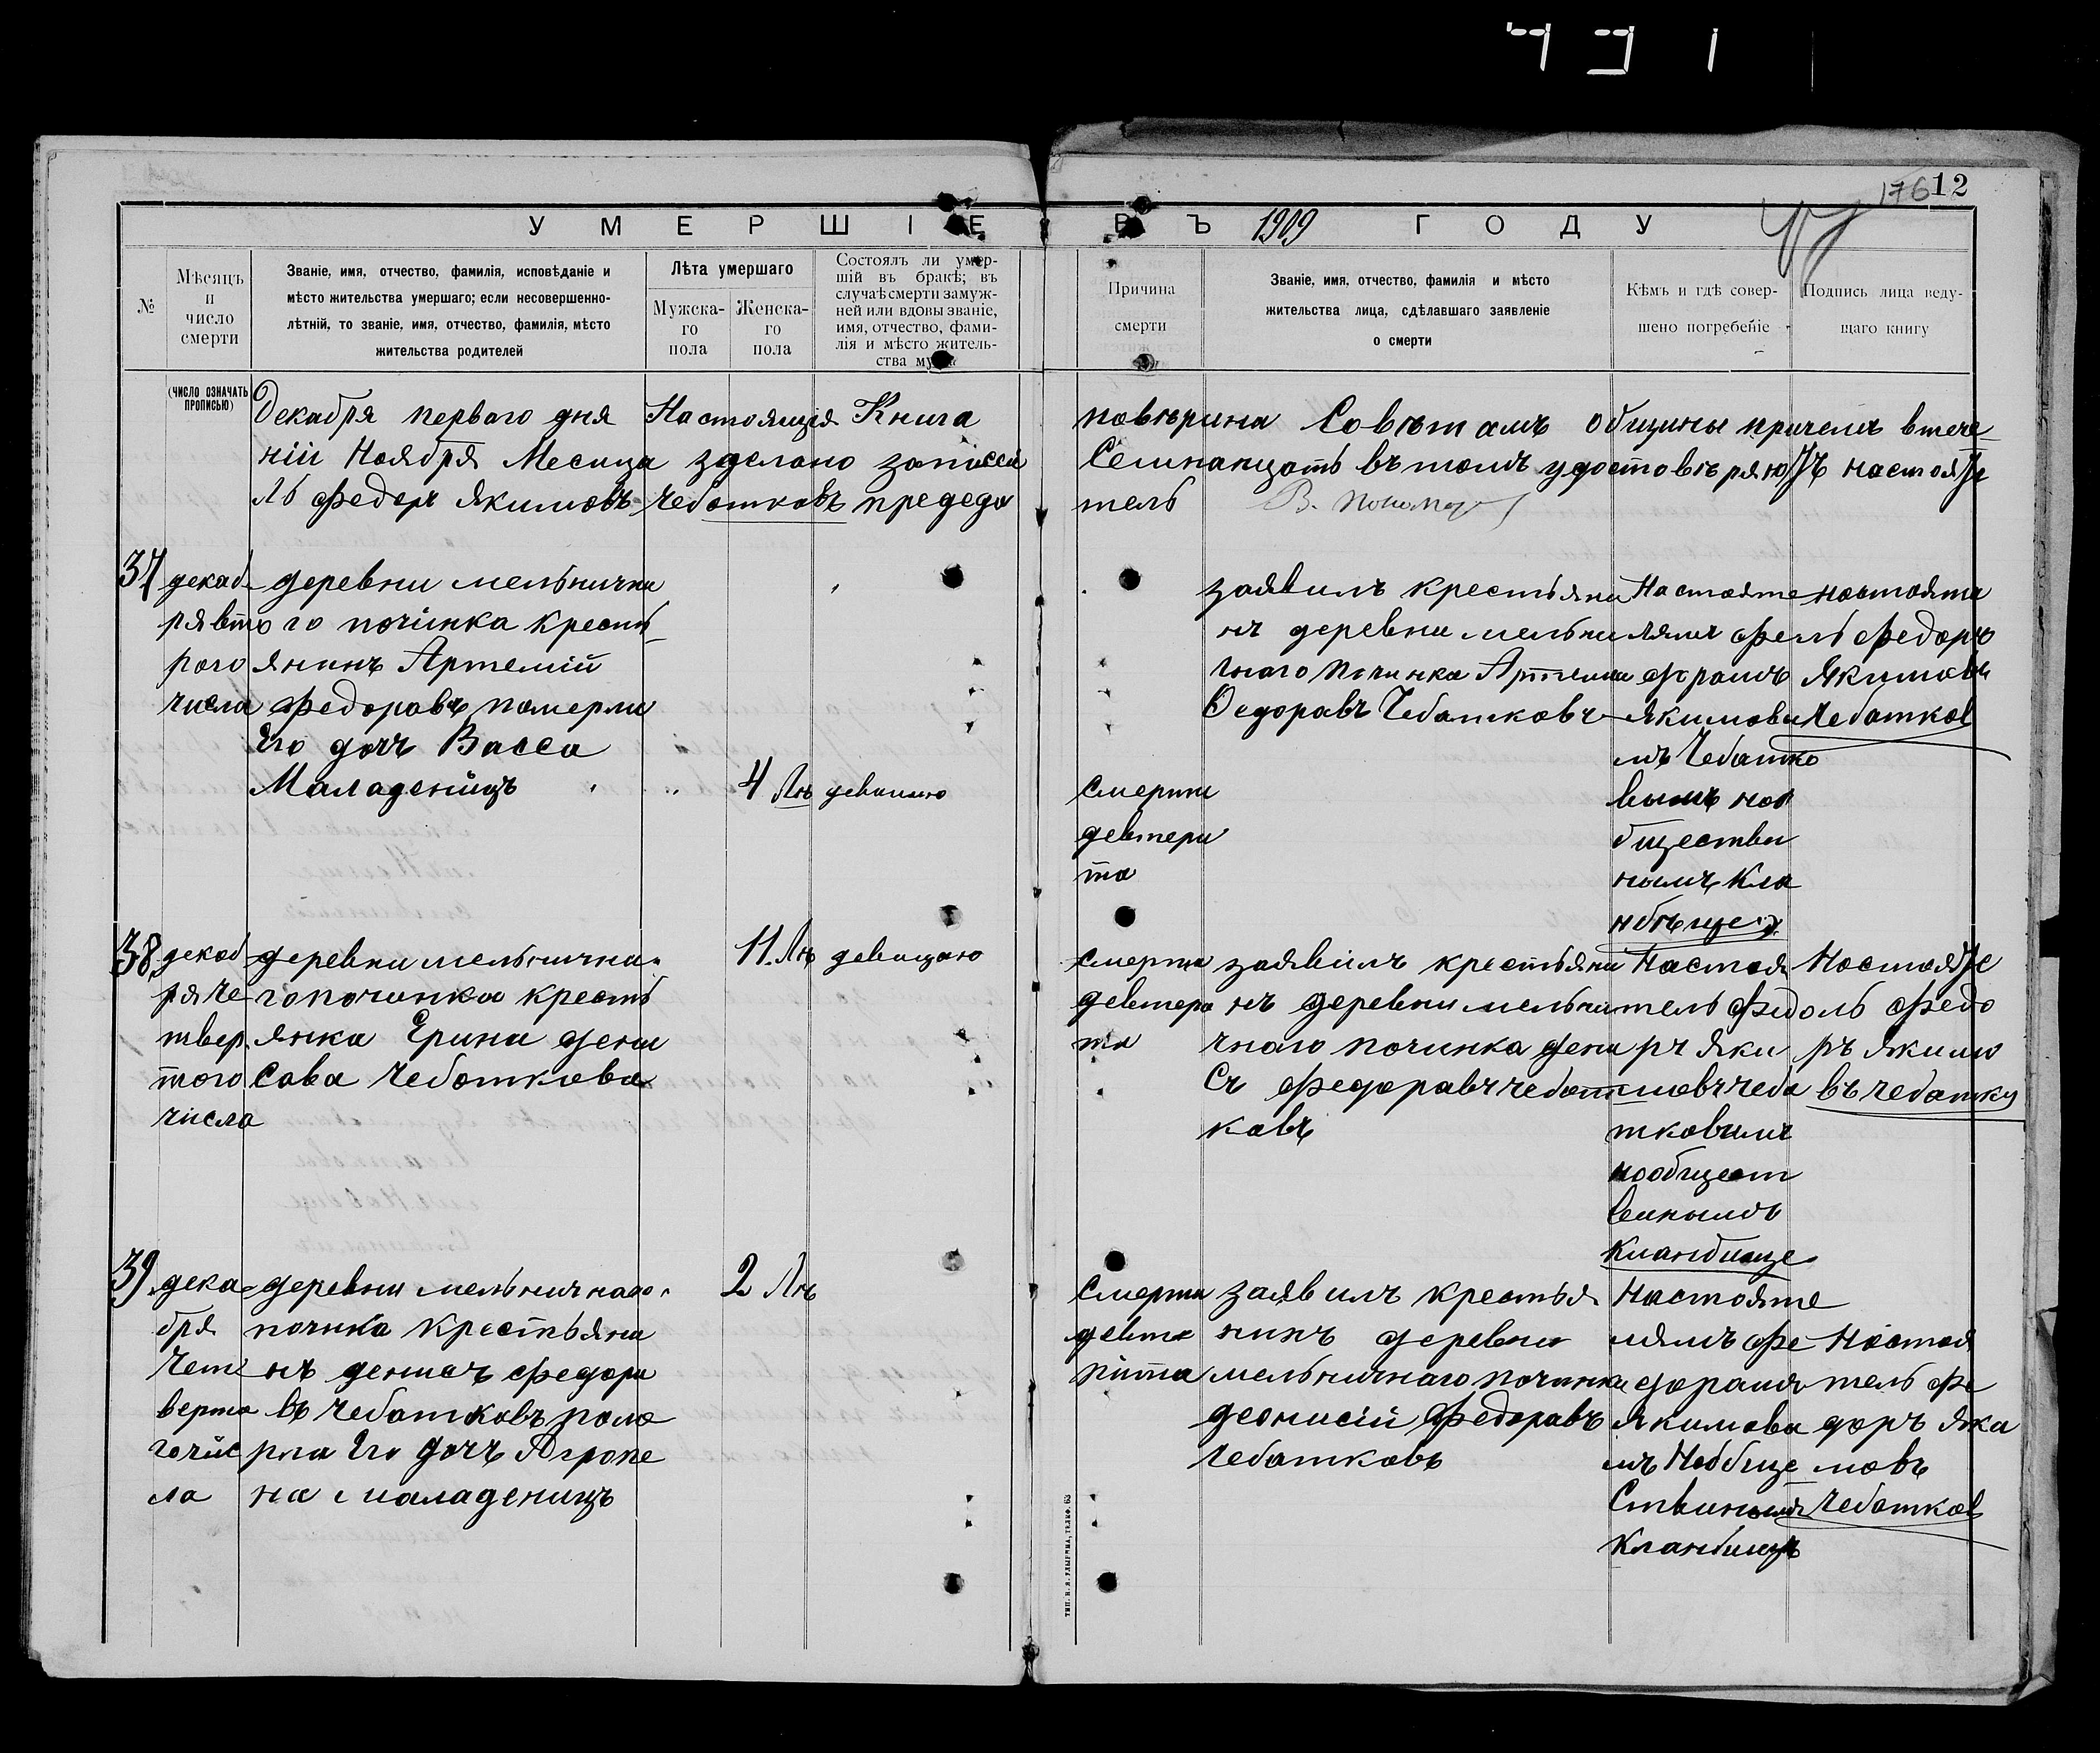 176 12
УМЕРШІЕ ВЪ 1909 ГОДУ
№
Мѣсяцъ
и
число
смерти
Званіе, имя, отчество, фамилія, исповѣданіе и
мѣсто жительства умершаго; если несовершенно-
лѣтній, то званіе, имя, отчество, фамилія, мѣсто
жительства родителей
Лѣта умершаго
Мужска-
го
пола
Женска-
го
пола
Состоялъ ли умер-
шій въ бракѣ; въ
случаѣ смерти замуж-
ней или вдовы званіе,
имя, отчество, фами-
лія и мѣсто житель-
ства мужа
Причина
смерти
Званіе, имя, отчество, фамилія и мѣсто
жительства лица, сдѣлавшаго заявленіе
о смерти
Кѣмъ и гдѣ совер-
шено погребеніе
Подпись лица веду-
щаго книгу
(ЧИСЛО ОЗНАЧАТЬ
ПРОПИСЬЮ)
Декабря перваго дня Настоящия Книга повѣрина Совѣтамъ Общины причемъ втече
ніи Ноября Месица зделано записей Семнанцать въ томъ удостовѣряю настояте
ль Федоръ Якимовъ Чебатковъ председа тель
37
декаб
рявто
рого
числа
деревни мельнични
го почінка кресть
янинъ Артемій
Федоравъ померли
Его дочъ Васса
Маладеницъ
4 Лѣ
девицаю
смерти
девтери
та
заявилъ крестьяни
нъ деревни мельни
чнаго починка Артеми
Федоравъ Чебатковъ
Настояте
лямъ Фе
дорамъ
Якимови
мъ Чебатко
вымъ нао
бществи
нымъ кла
нбѣще
настояте
ль Федоръ
Якимовъ
Чебатков
38
декаб
ря че
твер
того
числа
деревни мельнични
го починка кресть
янка Ерина дени
сава Чебаткова
11 Лѣ
девицаю
смерти
девтери
та
заявилъ крестьяни
нъ деревни мельни
чнаго починка дени
съ Федоравъ чебат
кавъ
Настоя
тель Федо
ръ Яки
мовъ чеба
тковымъ
нообщест
венымъ
кланбище
Настояте
ль Федо
ръ Якимо
въ чебатку
39
дека
бря
четь
верто
гочис
ла
деревни мельничнаго
почика крестьяни
нъ денисъ Федори
въ чебатковъ поме
рла Его дочъ Агропе
на маладеницъ
2 Лѣ
смерти
девте
рита
заявилъ крестья
нинъ деревни
мельничнаго починка
деонисій Федоравъ
чебатковъ
Настояте
лямъ Фе
дорамъ
Якимови
мъ Наобще
ствинымъ
кланбищъ
Настоя
тель Фе
доръ Яки
мовъ
чебатков